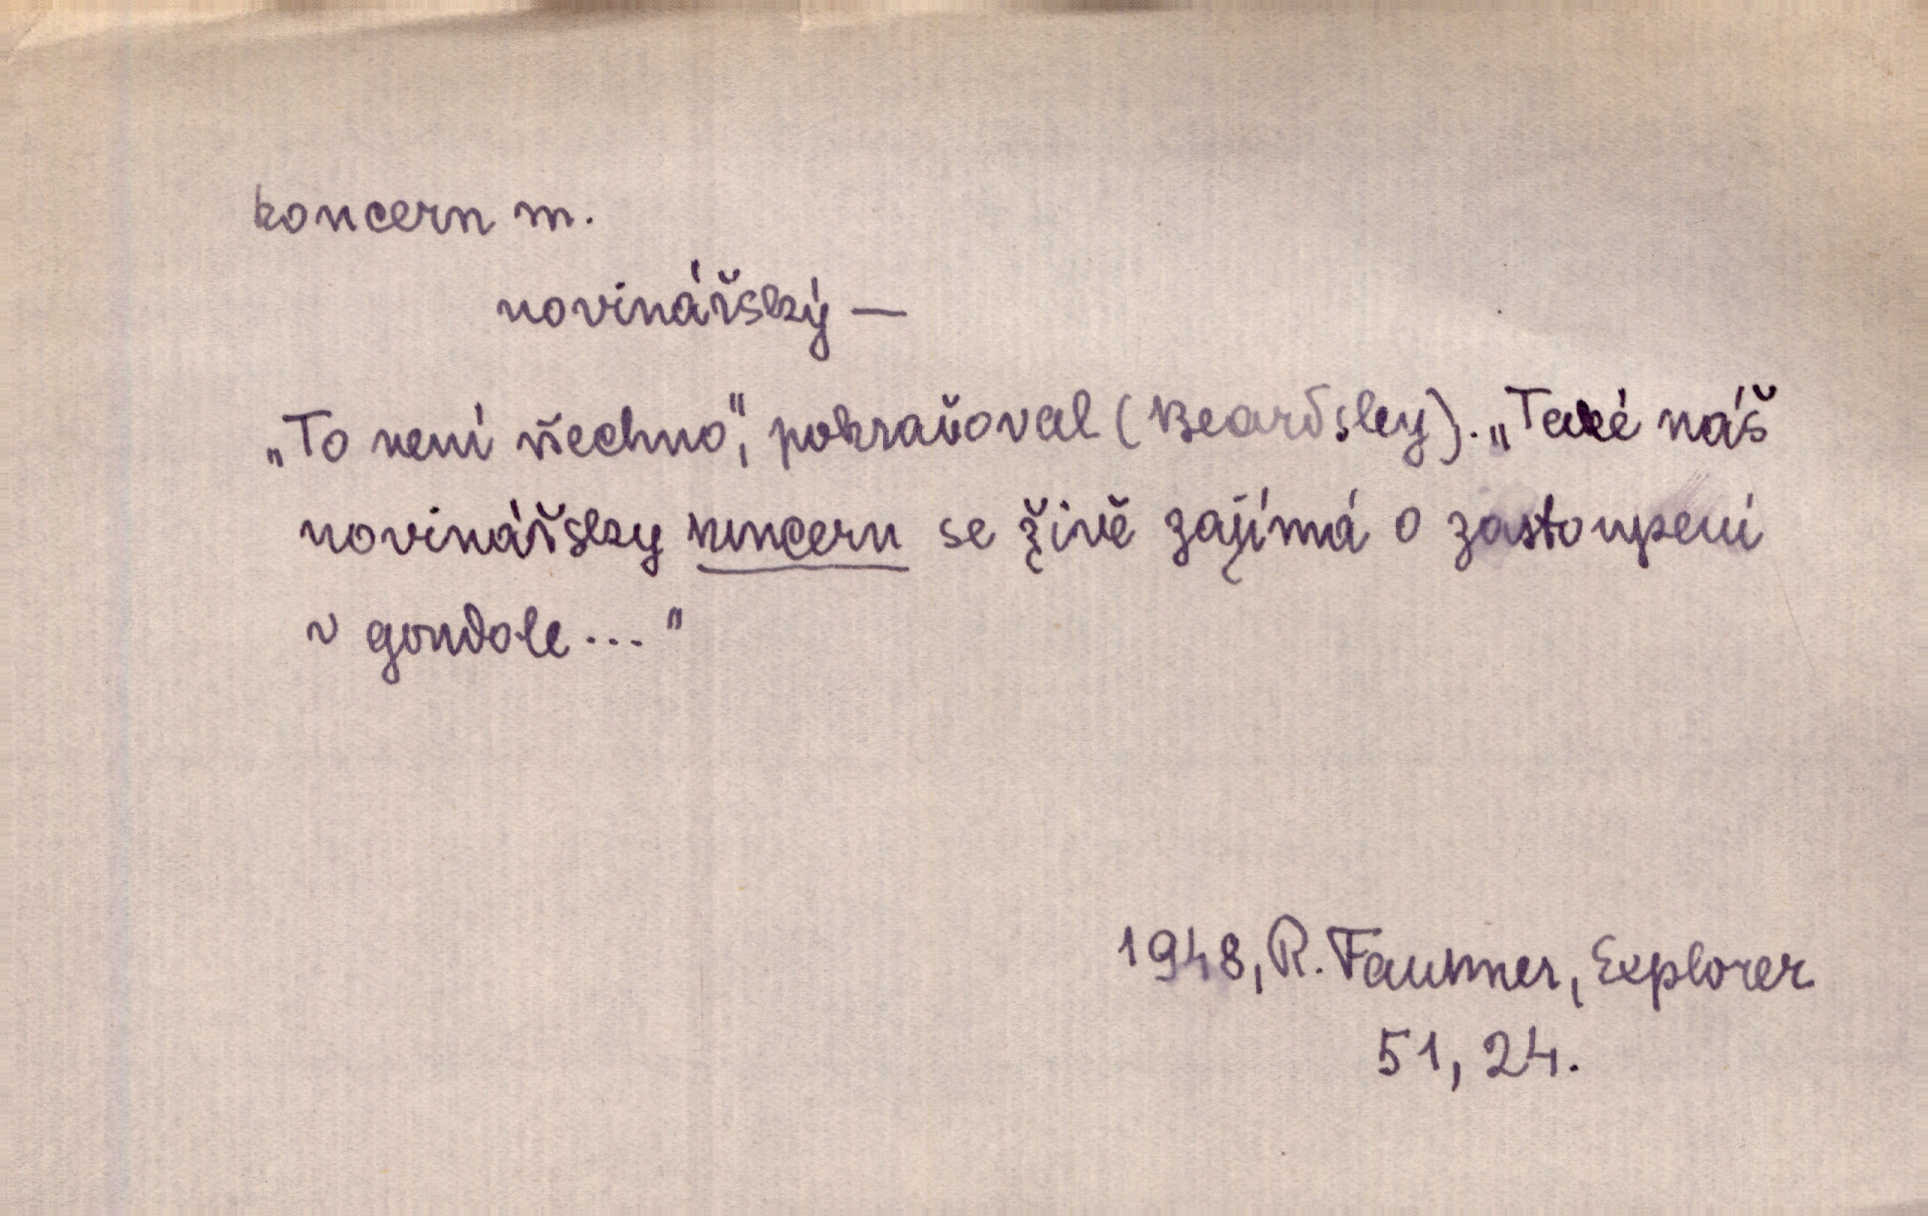 koncern m.
novinářský —
„To není všechno“, pokračoval (Beardsley). „Také náš
novinářsky koncern se živě zajímá o zastoupení
v gondole..."
1948, R. Faukner, Explorer
51, 24.